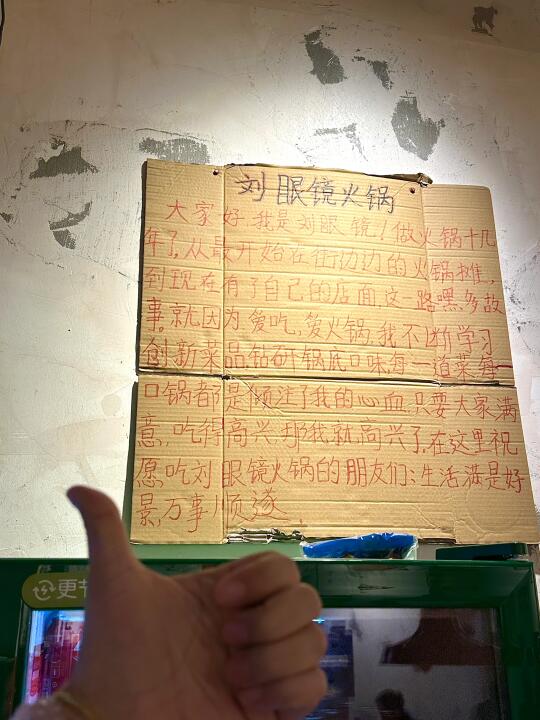 刘眼镜火锅
大家好,我是刘眼镜!做火锅十几
年了,从最开始在街边边的火锅摊,
到现在有了自己的店面这一路嘿多故
事。就因为爱吃,爱火锅,我不断学习
创新菜品钻研锅底口味,每一道菜每一
口锅都是倾注了我的心血,只要大家满
意,吃得高兴,那我就高兴了,在这里祝
愿吃刘眼镜火锅的朋友们:生活满是好
景,万事顺遂
更节